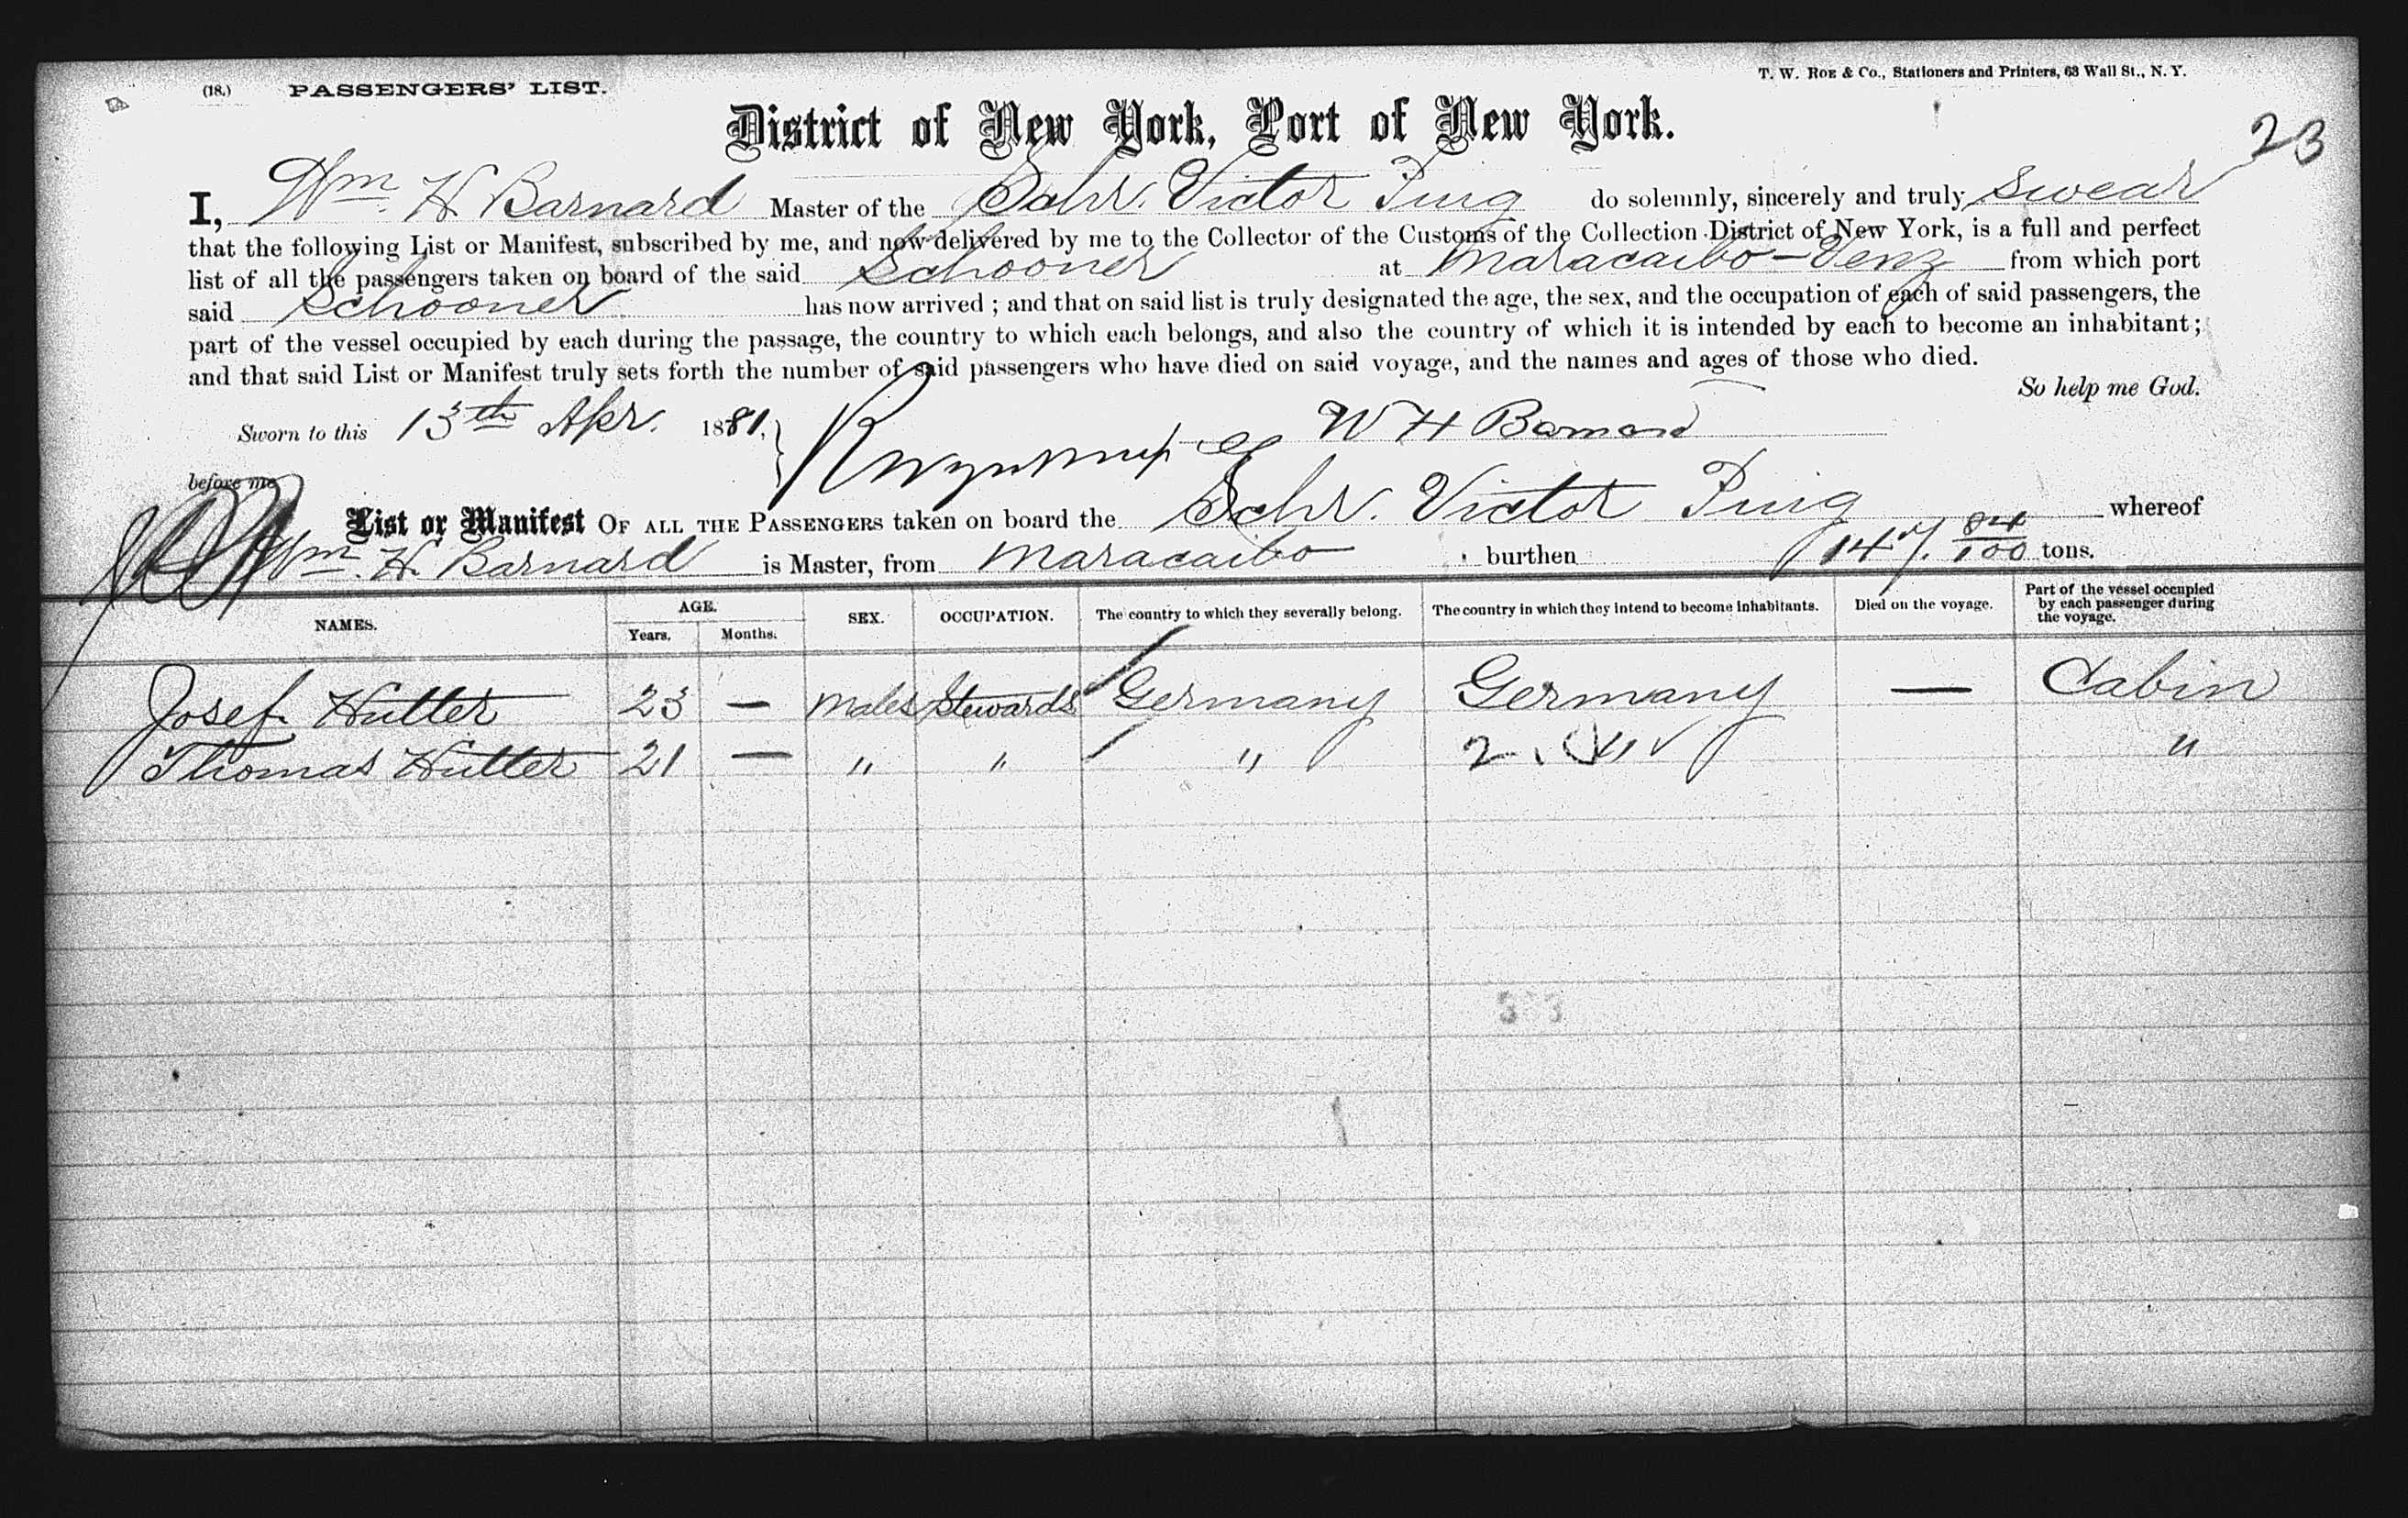 (18.) PASSENGERS' LIST. T. W. ROE & Co., Stationers and Printers, 63 Wall St., N. Y.
23
District of New York, Port of New York.
I, Wm. H Barnard Master of the Schr. Victor Puig do solemnly, sincerely and truly swear
that the following List or Manifest, subscribed by me, and now delivered by me to the Collector of the Customs of the Collection District of New York, is a full and perfect
list of all the passengers taken on board of the said Schooner at Maracaibo - Venz from which port
said Schooner has now arrived ; and that on said list is truly designated the age, the sex, and the occupation of each of said passengers, the
part of the vessel occupied by each during the passage, the country to which each belongs, and also the country of which it is intended by each to become an inhabitant ;
and that said List or Manifest truly sets forth the number of said passengers who have died on said voyage, and the names and ages of those who died.
So help me God.
Sworn to this 13th Apr. 1881, W H Barnard
before me
List or Manifest OF ALL THE PASSENGERS taken on board the Schr. Victor Puig whereof
Wm. H. Barnard is Master, from Maracaibo burthen 147. 84/100 tons.
NAMES. AGE. Years. Months. SEX. OCCUPATION. The country to which they severally belong. The country in which they intend to become inhabitants. Died on the voyage. Part of the vessel occupied by each passenger during the voyage.
Josef Hutter 23 — Males Stewards Germany Germany — Cabin
Thomas Hutter 21 — " " " "